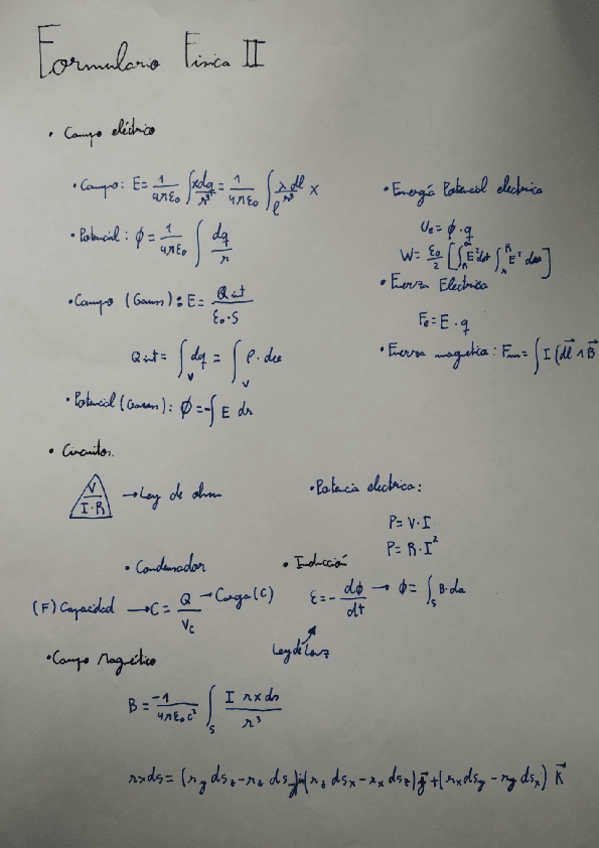 Formulario Fisica II
• Campo eléctrico
• Campo: E = 1/(4πε₀) ∫ xdq/r³ = 1/(4πε₀) ∫_l λdl/r³ x
• Potencial: ϕ = 1/(4πε₀) ∫ dq/r
• Campo (Gauss): E = Qint/(ε₀·S)
Qint = ∫_V dq = ∫_V ρ·dv
• Potencial (Gauss): ϕ = -∫ E dr
• Energía Potencial electrica
Ue = ϕ·q
W = ε₀/2 [∫ E² dv ∫ E² dv]
• Fuerza Electrica
Fe = E·q
• Fuerza magnetica: Fm = ∫ I (dl⃗ ∧ B⃗
• Circuitos.
V/(I·R) → Ley de ohm
• Potencia electrica:
P = V·I
P = R·I²
• Condensador
(F) Capacidad → C = Q/Vc → Carga (C)
• Inducción
ε = - dϕ/dt → ϕ = ∫_S B·da
Ley de Lenz
• Campo Magnético
B = -1/(4πε₀c²) ∫_S I r×ds/r³
r×ds = (r_y ds_z - r_z ds_y)i + (r_z ds_x - r_x ds_z) j⃗ + (r_x ds_y - r_y ds_x) k⃗